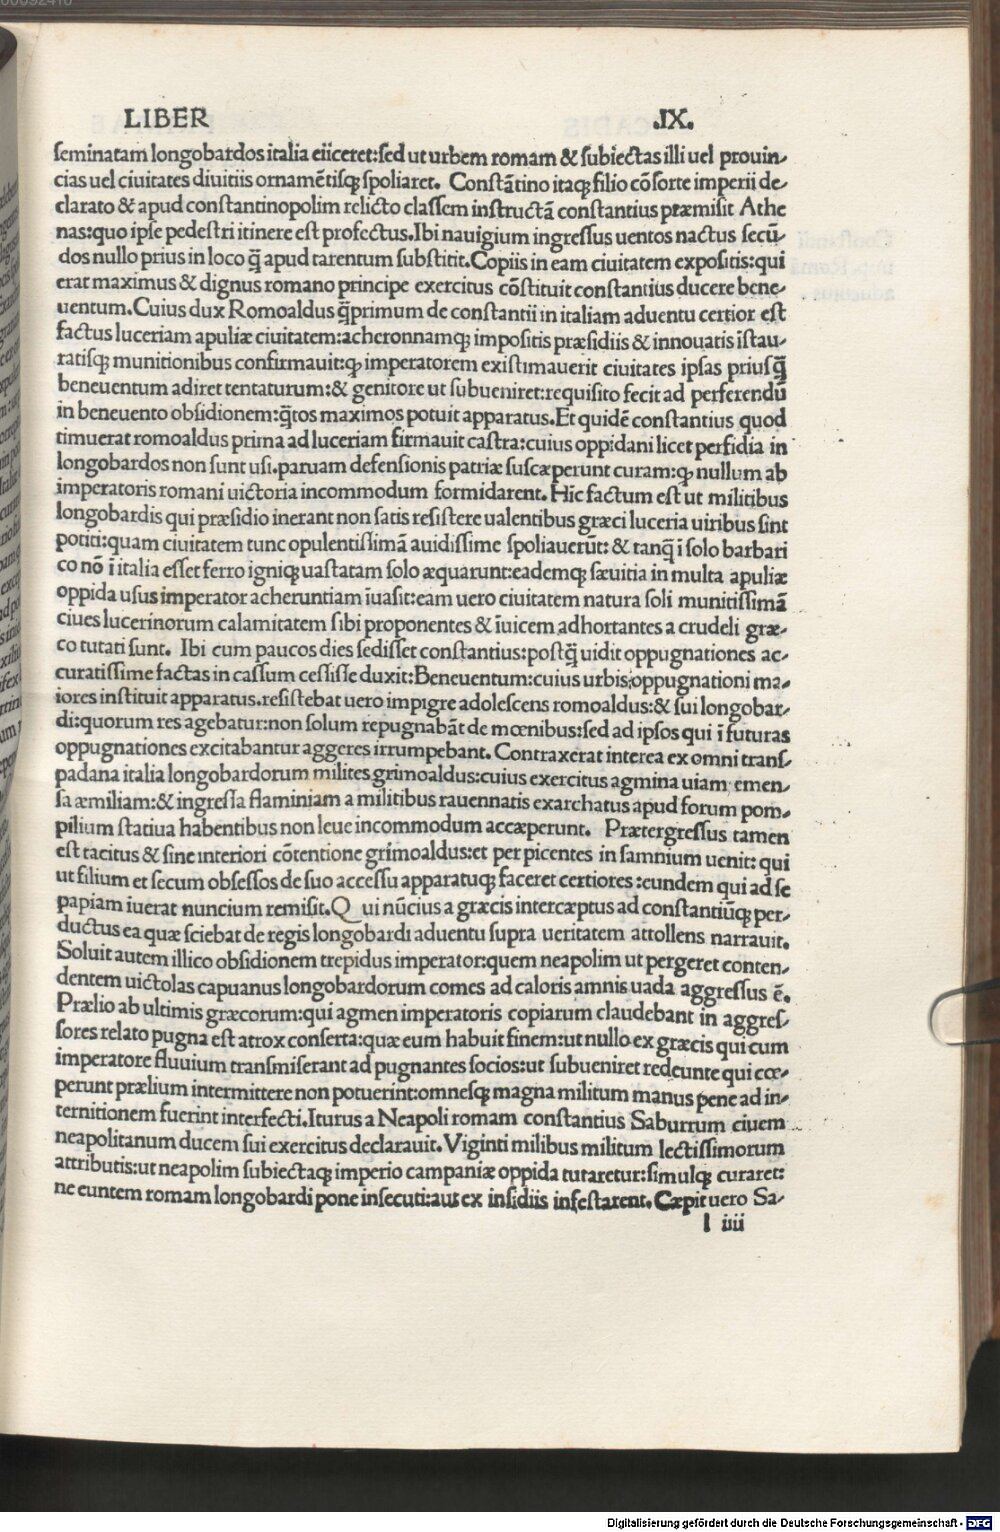 LIBER .IX.
seminatam longobardos italia eiiceret:sed ut urbem romam & subiectas illi uel prouin-
cias uel ciuitates diuitiis ornamẽtisqꝫ spoliaret. Constãtino itaqꝫ filio cõsorte imperii de-
clarato & apud constantinopolim relicto classem instructã constantius præmisit Athe
nas:quo ipse pedestri itinere est profectus.Ibi nauigium ingressus uentos nactus secũ-
dos nullo prius in loco q̃ apud tarentum substitit.Copiis in eam ciuitatem expositis:qui
erat maximus & dignus romano principe exercitus cõstituit constantius ducere bene-
uentum.Cuius dux Romoaldus q̃primum de constantii in italiam aduentu certior est
factus luceriam apuliæ ciuitatem:acheronnamqꝫ impositis præsidiis & innouatis ĩstau-
ratisqꝫ munitionibus confirmauit:qꝫ imperatorem existimauerit ciuitates ipsas priusq̃
beneuentum adiret tentaturum:& genitore ut subueniret:requisito fecit ad perferendũ
in beneuento obsidionem:q̃tos maximos potuit apparatus.Et quidẽ constantius quod
timuerat romoaldus prima ad luceriam firmauit castra:cuius oppidani licet perfidia in
longobardos non sunt usi.paruam defensionis patriæ suscæperunt curam:qꝫ nullum ab
imperatoris romani uictoria incommodum formidarent.Hic factum est ut militibus
longobardis qui præsidio inerant non satis resistere ualentibus græci luceria uiribus sint
potiti:quam ciuitatem tunc opulentissimã auidissime spoliauerũt:& tanq̃ ĩ solo barbari
co nõ ĩ italia esset ferro igniqꝫ uastatam solo æquarunt:eademqꝫ sæuitia in multa apuliæ
oppida usus imperator acheruntiam ĩuasit:eam uero ciuitatem natura soli munitissimã
ciues lucerinorum calamitatem sibi proponentes & ĩuicem adhortantes a crudeli græ-
co tutati sunt. Ibi cum paucos dies sedisset constantius:postq̃ uidit oppugnationes ac-
curatissime factas in cassum cessisse duxit:Beneuentum:cuius urbis:oppugnationi ma-
iores instituit apparatus.resistebat uero impigre adolescens romoaldus:& sui longobar-
di:quorum res agebatur:non solum repugnabãt de mœnibus:sed ad ipsos qui ĩ futuras
oppugnationes excitabantur aggeres irrumpebant. Contraxerat interea ex omni trans-
padana italia longobardorum milites grimoaldus:cuius exercitus agmina uiam emen-
sa æmiliam:& ingressa flaminiam a militibus rauennatis exarchatus apud forum pom-
pilium statiua habentibus non leue incommodum accæperunt. Prætergressus tamen
est tacitus & sine interiori cõtentione grimoaldus:et per picentes in samnium uenit: qui
ut filium et secum obsessos de suo accessu apparatuqꝫ faceret certiores :eundem qui ad se
papiam ĩuerat nuncium remisit.Qui nũcius a græcis intercæptus ad constantiũqꝫ per-
ductus ea quæ sciebat de regis longobardi aduentu supra ueritatem attollens narrauit.
Soluit autem illico obsidionem trepidus imperator:quem neapolim ut pergeret conten-
dentem uictolas capuanus longobardorum comes ad caloris amnis uada aggressus ẽ.
Prælio ab ultimis græcorum:qui agmen imperatoris copiarum claudebant in aggres-
sores relato pugna est atrox conserta:quæ eum habuit finem:ut nullo ex græcis qui cum
imperatore fluuium transmiserant ad pugnantes socios:ut subueniret redeunte qui cœ-
perunt prælium intermittere non potuerint:omnesqꝫ magna militum manus pene ad in-
ternitionem fuerint interfecti.Iturus a Neapoli romam constantius Saburrum ciuem
neapolitanum ducem sui exercitus declarauit.Viginti milibus militum lectissimorum
attributis:ut neapolim subiectaqꝫ imperio campaniæ oppida tutaretur:simulqꝫ curaret:
ne euntem romam longobardi pone insecuti:aut ex insidiis infestarent.Cæpit uero Sa-
l iiii
Digitalisierung gefördert durch die Deutsche Forschungsgemeinschaft - DFG